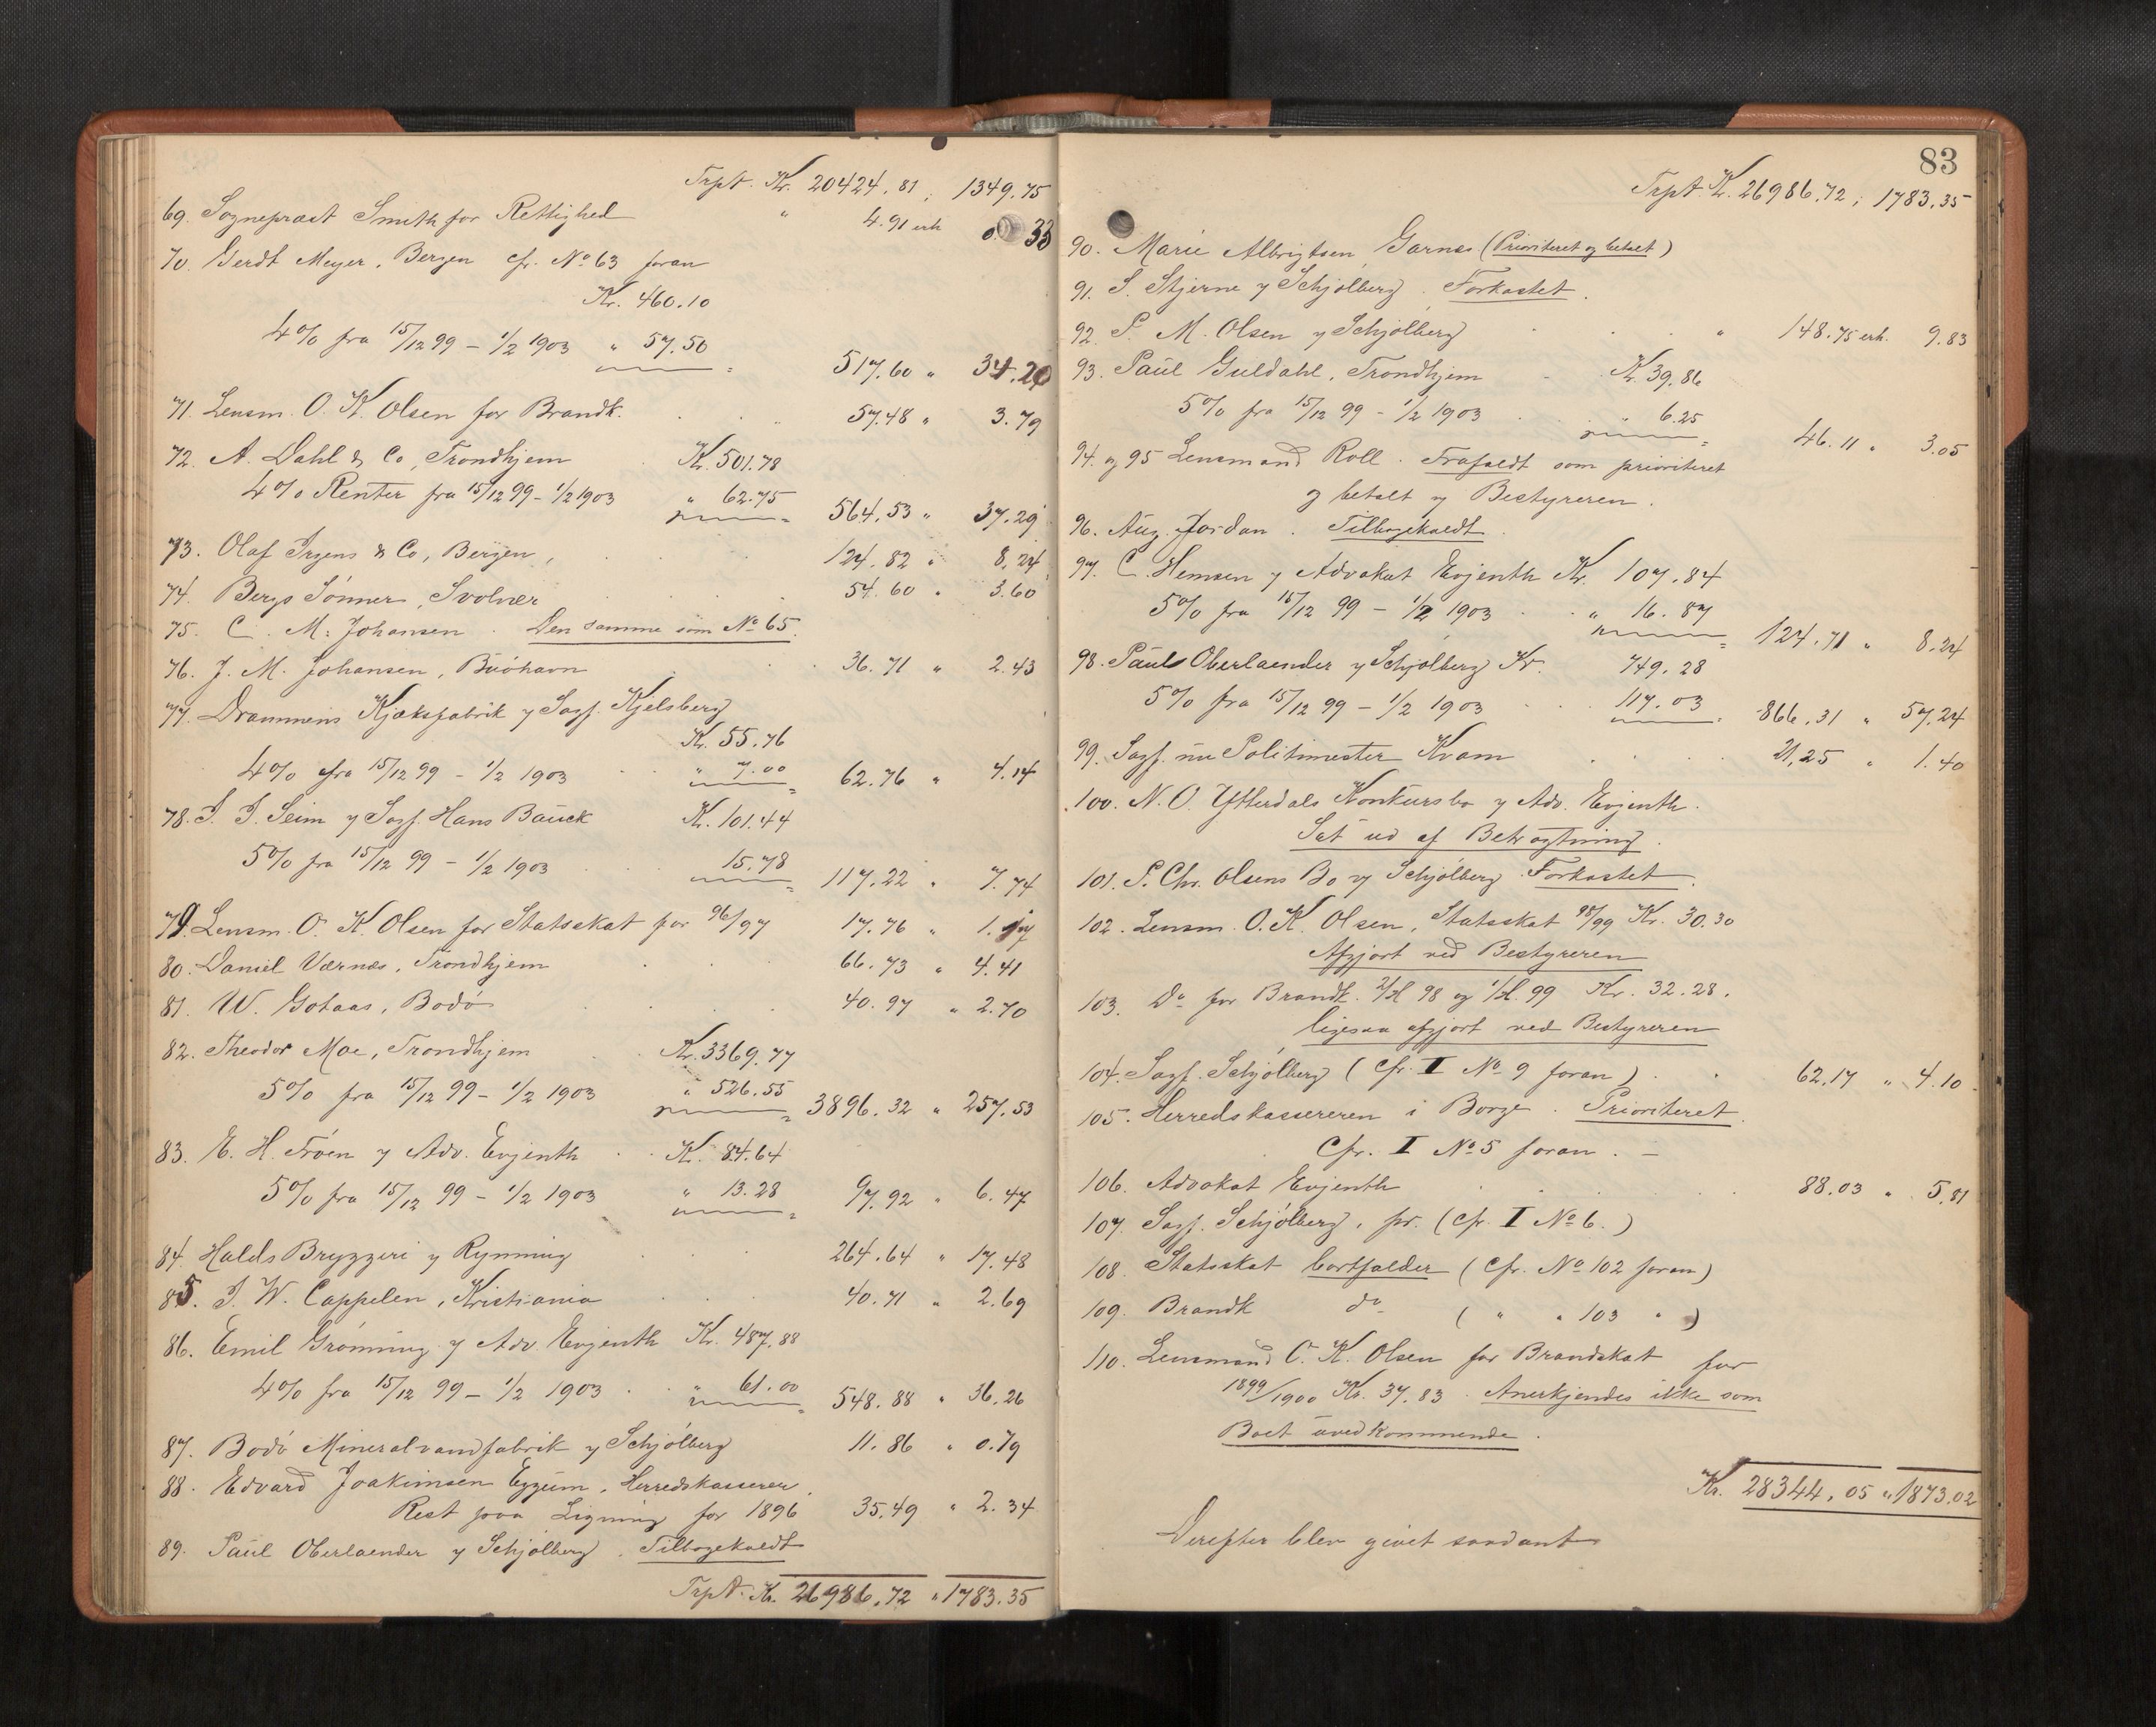 Trpt. Kr. 20424.81; 1349.75
69. Sognepræst Smith for Rettighed " 4.91 erh 0.33
70. Gerdt Meyer, Bergen cfr. No 63 foran
Kr. 460.10
4% fra 15/12 99 - 1/2 1903 " 57.50 517.60 " 34.20
71. Lensm. O. K. Olsen for Brandk. 57.48 " 3.79
72. A. Dahl & Co, Trondhjem Kr. 501.78
4% Renter fra 15/12 99 - 1/2 1903 " 62.75 564.53 " 37.29
73. Olaf Irgens & Co, Bergen, 124.82 " 8.24
74. Bergs Sønner, Svolvær 54.60 " 3.60
75. C. M. Johansen. Den samme som No 65.
76. J. M. Johansen, 36.71 " 2.43
77. Drammens Kjæksfabrik v Sagf. Kjelsberg
Kr. 55.76
4% fra 15/12 99 - 1/2 1903 " 7.00 62.76 " 4.14
78. I. I. Seim v Sagf. Hans Bauck Kr. 101.44
5% fra 15/12 99 - 1/2 1903 15.78 117.22 " 7.74
79. Lensm. O. K. Olsen for Statsskat for 96/97 17.76 " 1.17
80. Daniel Værnes, Trondhjem 66.73 " 4.41
81. W. Gotaas, Bodö 40.97 " 2.70
82. Theodor Moe, Trondhjem Kr. 3369.77
5% fra 15/12 99 - 1/2 1903 " 526.55 3896.32 " 257.53
83. E. H. Fröen v Adv. Evjenth Kr. 84.64
5% fra 15/12 99 - 1/2 1903 " 13.28 97.92 " 6.47
84. Halds Bryggeri v Rynning 264.64 " 17.48
85. J. W. Cappelen, Kristiania 40.71 " 2.69
86. Emil Grönning v Adv. Evjenth Kr. 487.88
4% fra 15/12 99 - 1/2 1903 " 61.00 548.88 " 36.26
87. Bodö Mineralvandfabrik v Schjölberg 11.86 " 0.79
88. Edvard Joakimsen Eggum, Herredskasserer,
Rest paa Ligning for 1896 35.49 " 2.34
89. Paul Oberlaender v Schjölberg. Tilbagekaldt
Trpt. Kr. 26986.72 " 1783.35
83
Trpt. Kr. 26986.72; 1783.35
90. Marie Albrigtsen Garnes (Prioriteret og betalt)
91. S. Stjerne v Schjölberg. Forkastet.
92. P. M. Olsen v Schjölberg " 148.75 erh. 9.83
93. Paul Guldahl, Trondhjem Kr. 39.86
5% fra 15/12 99 - 1/2 1903 " 6.25 46.11 " 3.05
94. og 95 Lensmand Roll. Frafaldt som prioriteret
og betalt v Bestyreren.
96. Aug. Jordan. Tilbagekaldt.
97. C. Hemsen v Advokat Evjenth Kr. 107.84
5% fra 15/12 99 - 1/2 1903 " 16.87 124.71 " 8.24
98. Paul Oberlaender v Schjölberg Kr. 749.28
5% fra 15/12 99 - 1/2 1903 117.03 866.31 " 57.24
99. Sagf. nu Politimester Kvam 21.25 " 1.40
100. N. O. Ytterdals Konkursbo v Adv. Evjenth.
Sat ud af Betragtning.
101. P. Chr. Olsens Bo v Schjölberg. Forkastet.
102. Lensm. O. K. Olsen, Statsskat 98/99 Kr. 30.30
Afgjort ved Bestyreren
103. Do for Brandk. 2/H 98 og 1/H. 99 Kr. 32.28.
ligesaa afgjort ved Bestyreren
104. Sagf. Schjölberg (cfr. I No 9 foran) 62.17 " 4.10
105. Herredskassereren i Borge. Prioriteret.
Cfr. I No 5 foran. -
106. Advokat Evjenth 88.03 " 5.81
107. Sagf. Schjölberg, pr. (cfr. I No 6.)
108. Statsskat bortfalder (cfr. No 102 foran)
109. Brandk do ( " " 103 " )
110. Lensmand O. K. Olsen for Brandskat for
1899/1900 Kr. 37.83. Anerkjendes ikke som
Boet uvedkommende.
Kr. 28344.05 " 1873.02
Derefter blev givet saadant